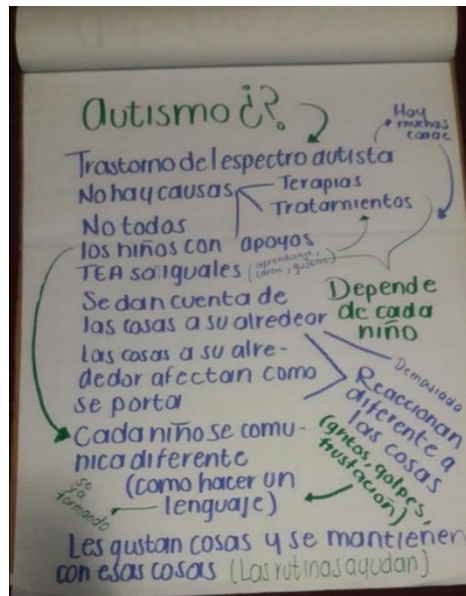 autismo ¿?
Hay
muchas
carac
Trastorno del espectro autista
No hay causas
Terapias
Tratamientos
No todos
los niños con apoyos
TEA son iguales (aprendizaje,
gustos)
Se dan cuenta de
las cosas a su alrededor
Depende
de cada
niño
Las cosas a su alre-
dedor afectan como
se porta
Demasiado
Reaccionan
diferente a
las cosas
(gritos, golpes,
frustacion)
Cada niño se comu-
nica diferente
(como hacer un
lenguaje)
se
va
formando
Les gustan cosas y se mantienen
con esas cosas (Las rutinas ayudan)